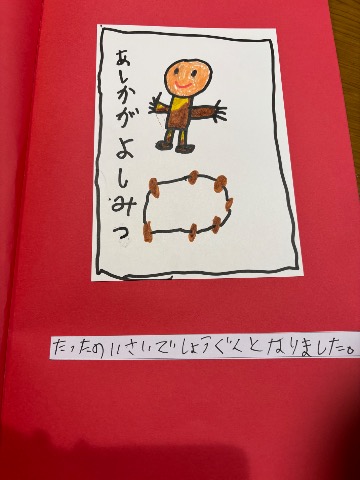 あしかが よしみつ
たったの11さいでしょうぐんとなりました。